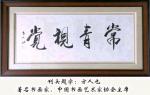 常青視覺
刊头题字：方人也
著名书画家、中国书画艺术家协会主席